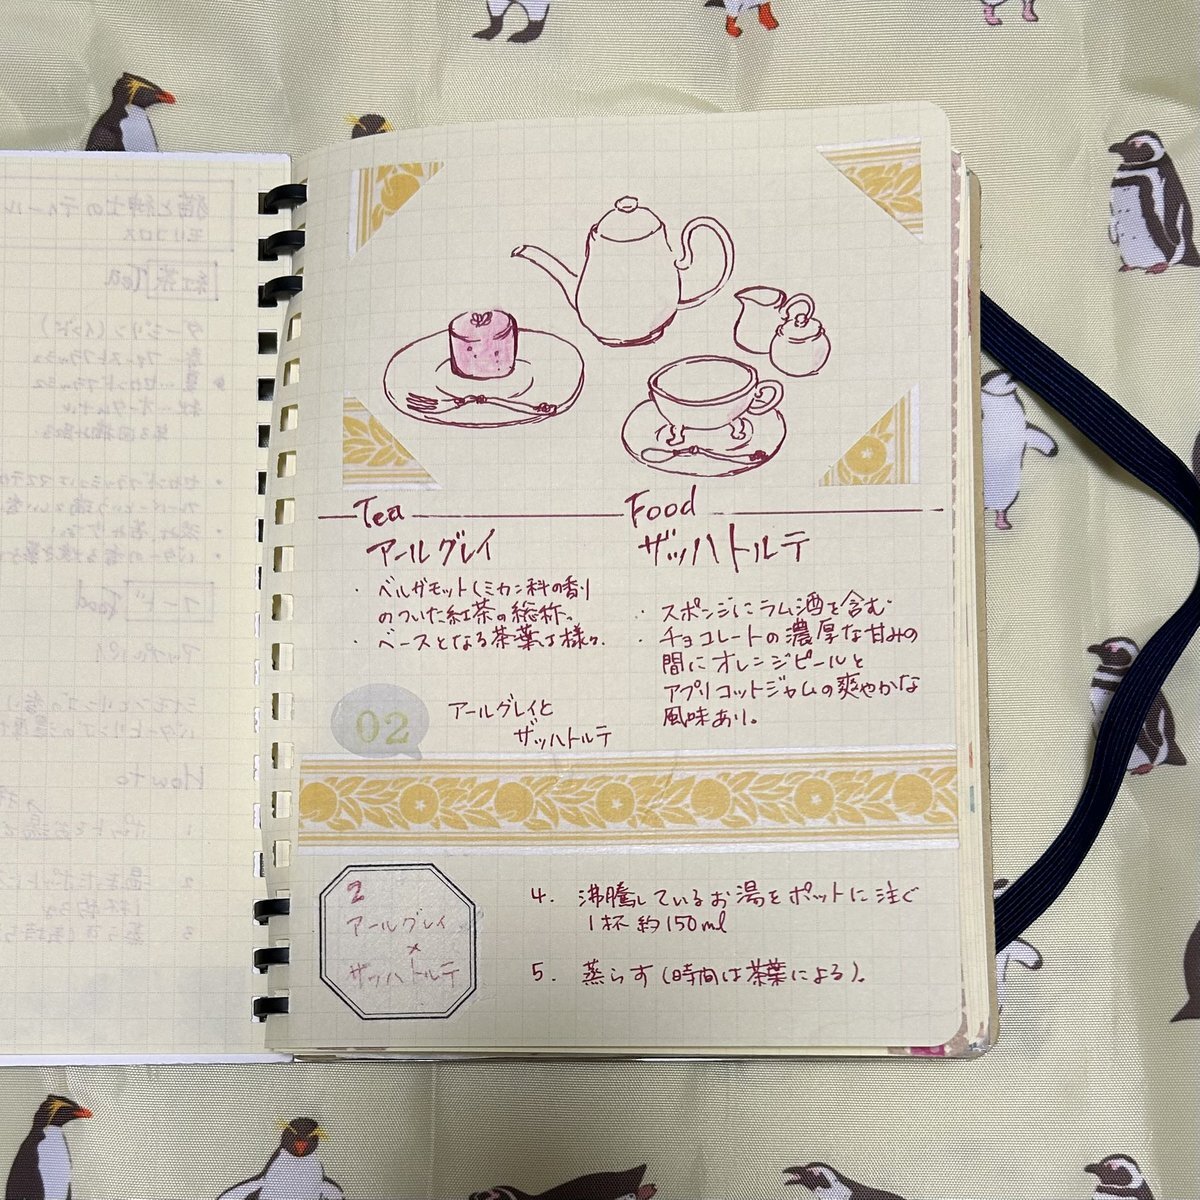 Tea
アールグレイ
・ベルガモット(ミカン科の香り
のついた紅茶の総称。
・ベースとなる茶葉は様々.
Food
ザッハトルテ
・スポンジにラム酒を含む
・チョコレートの濃厚な甘みの
間にオレンジピールと
アプリコットジャムの爽やかな
風味あり。
02
アールグレイと
ザッハトルテ
2
アールグレイ
×
ザッハトルテ
4. 沸騰しているお湯をポットに注ぐ
1杯約150ml
5. 蒸らす(時間は茶葉による)。